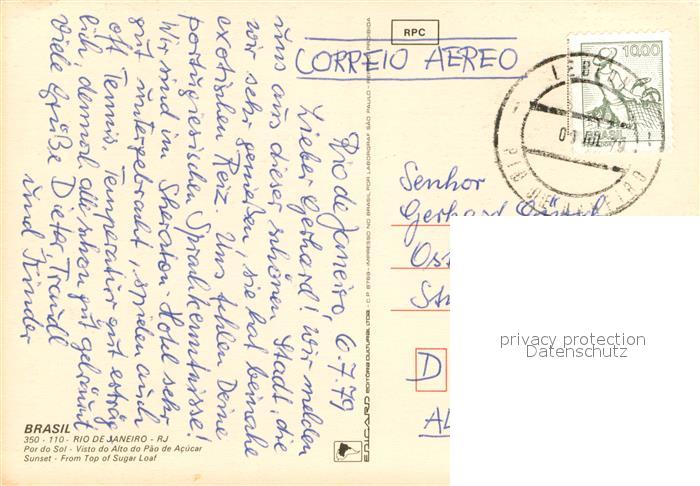 Rio de Janeiro, 6.7.79
Lieber Gerhard! Wir melden
uns aus dieser schönen Stadt, die
wir sehr genießen, sie hat beinahe
exotischen Reiz. Uns fehlen Deine
portugiesischen Sprachkenntnisse!
Wir sind im Sheraton-Hotel sehr
gut untergebracht, spielen auch
oft Tennis, Temperatur gut erträg
lich, demal alle schon gut gebräunt
Viele Grüße Dieter, Traudl
und Kinder
BRASIL
350 - 110 - RIO DE JANEIRO - RJ
Por do Sol - Visto do Alto do Pão de Açúcar
Sunset - From Top of Sugar Loaf
EDICARD EDITORA CULTURAL LTDA. - C.P. 8769 - IMPRESSO NO BRASIL POR LABORGRAF SÃO PAULO - PROIBIDA
RPC
CORREIO AEREO
10,00
BRASIL
RIO DE JANEIRO
Senhor
Gerhard
Ost
D
privacy protection
Datenschutz